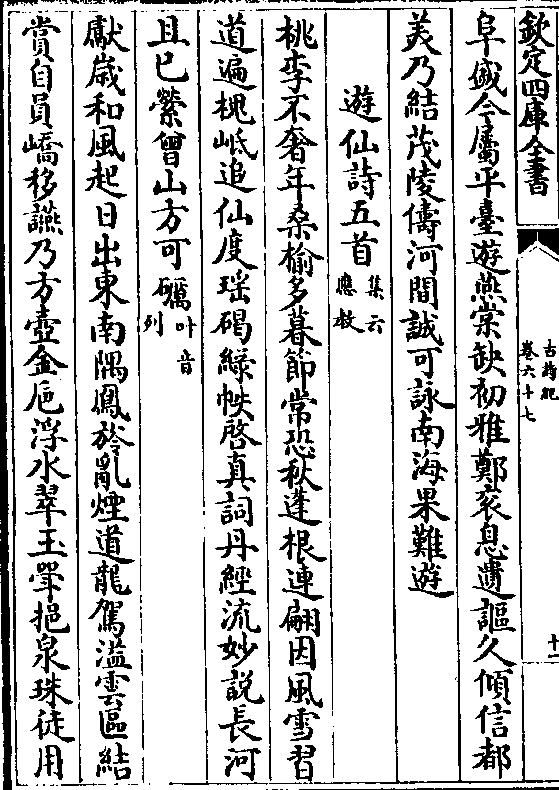 欽定四庫全書
古詩紀
卷六十七
十一
阜盛今屬平臺遊燕棠缺初雅鄭衮息遺謳久傾信都
美乃結茂陵儔河間誠可詠南海果難遊
遊仙詩五首集云應教
桃李不奢年桑榆多暮節常恐秋蓬根連翩因風雪習
道遍槐岻追仙度瑶碣緑帙啓真詞丹經流妙說長河
且已縈曾山方可礪叶音列
獻歳和風起日出東南隅鳳旍亂煙道龍駕溢雲區結
賞自員嶠移讌乃方壺金巵浮水翠玉斝挹泉珠徒用